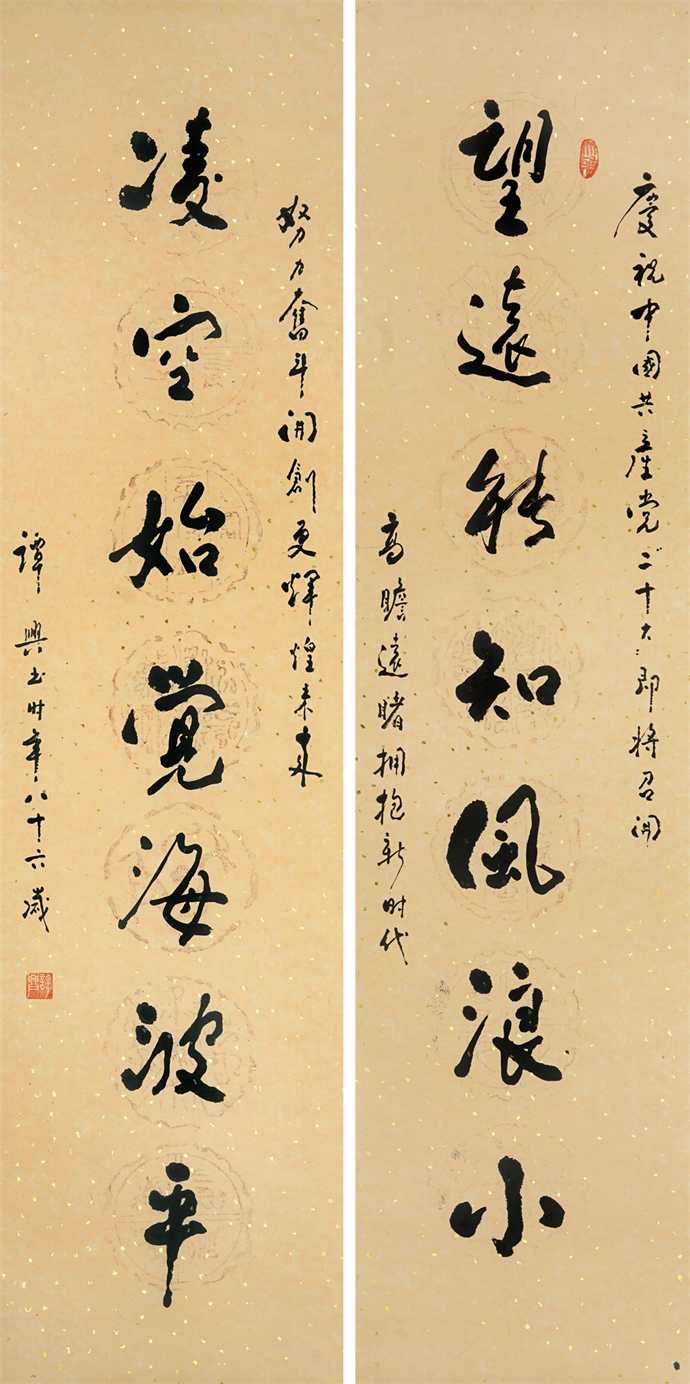 慶祝中國共產党二十大即將召開
望遠能知風浪小
高瞻遠睹拥抱新时代
努力奮斗開創更輝煌未來
凌空始覺海波平
譚興书时年八十六歲